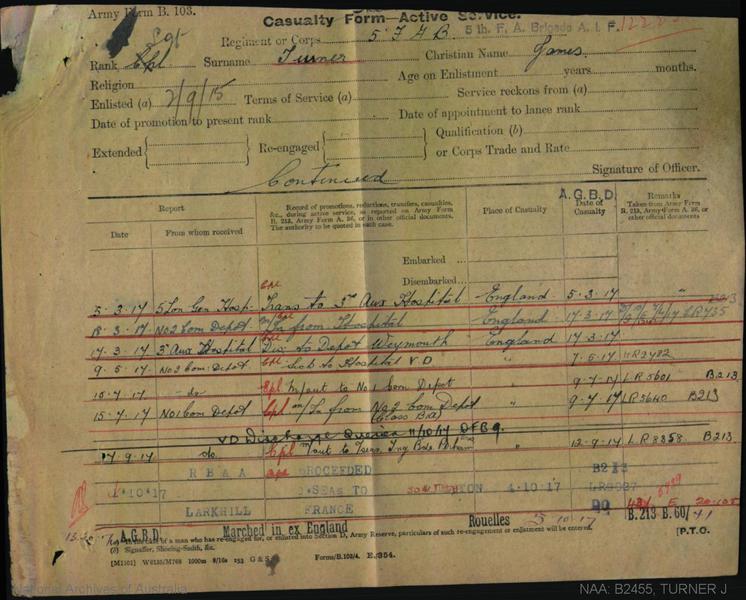 Army Form B. 103.
Casualty Form—Active Service.
Regiment or Corps 5 F A B. 5 th. F. A. Brigade A. I. F.
Sgt
Rank Cpl Surname Turner Christian Name James
Religion Age on Enlistment years months.
Enlisted (a) 2/9/15 Terms of Service (a) Service reckons from (a)
Date of promotion to present rank Date of appointment to lance rank
Extended Re-engaged Qualification (b)
or Corps Trade and Rate
Continued Signature of Officer.
A.G.B.D.
Report
Date From whom received
Record of promotions, reductions, transfers, casualties, &c., during active service, as reported on Army Form B. 213, Army Form A. 36, or in other official documents. The authority to be quoted in each case.
Place of Casualty
Date of Casualty
Remarks
Taken from Army Form B. 213, Army Form A. 36, or other official documents
Embarked
Disembarked
5.3.17 5 Lon Gen Hosp. Cpl Trans to 3rd Aux Hospital England 5.3.17 "
18.3.17 No 2 Com Depot In from Hospital England 17.3.17 LR735
17.3.17 3rd Aux Hospital Cpl Dis: to Depot Weymouth England 17.3.17
9.5.17 No 2 Com: Depot Cpl Sick to Hospital V D " 7.5.17
15.7.17 do Cpl M/out to No 1 Com Depot 9.7.17 LR5601 B213
15.7.17 No 1 Com Depot Cpl M/In from No 2 Com Depot " 9.7.17 LR5640 B213
(Class B1a)
17.9.17 do. Cpl M/out " 12.9.17 LR8858 B213
RBAA PROCEEDED B213
10 17 O'SEAS TO 4.10.17
LARKHILL FRANCE DO
A.G.B.D. Marched in ex England Rouelles 5 10.17 B.213 B.60/41
(a) In the case of a man who has re-engaged for, or enlisted into Section D, Army Reserve, particulars of such re-engagement or enlistment will be entered. [P.T.O.
(b) Signaller, Shoeing-Smith, &c.
Forms/B.103/4 E./354.
National Archives of Australia
NAA: B2455, TURNER J